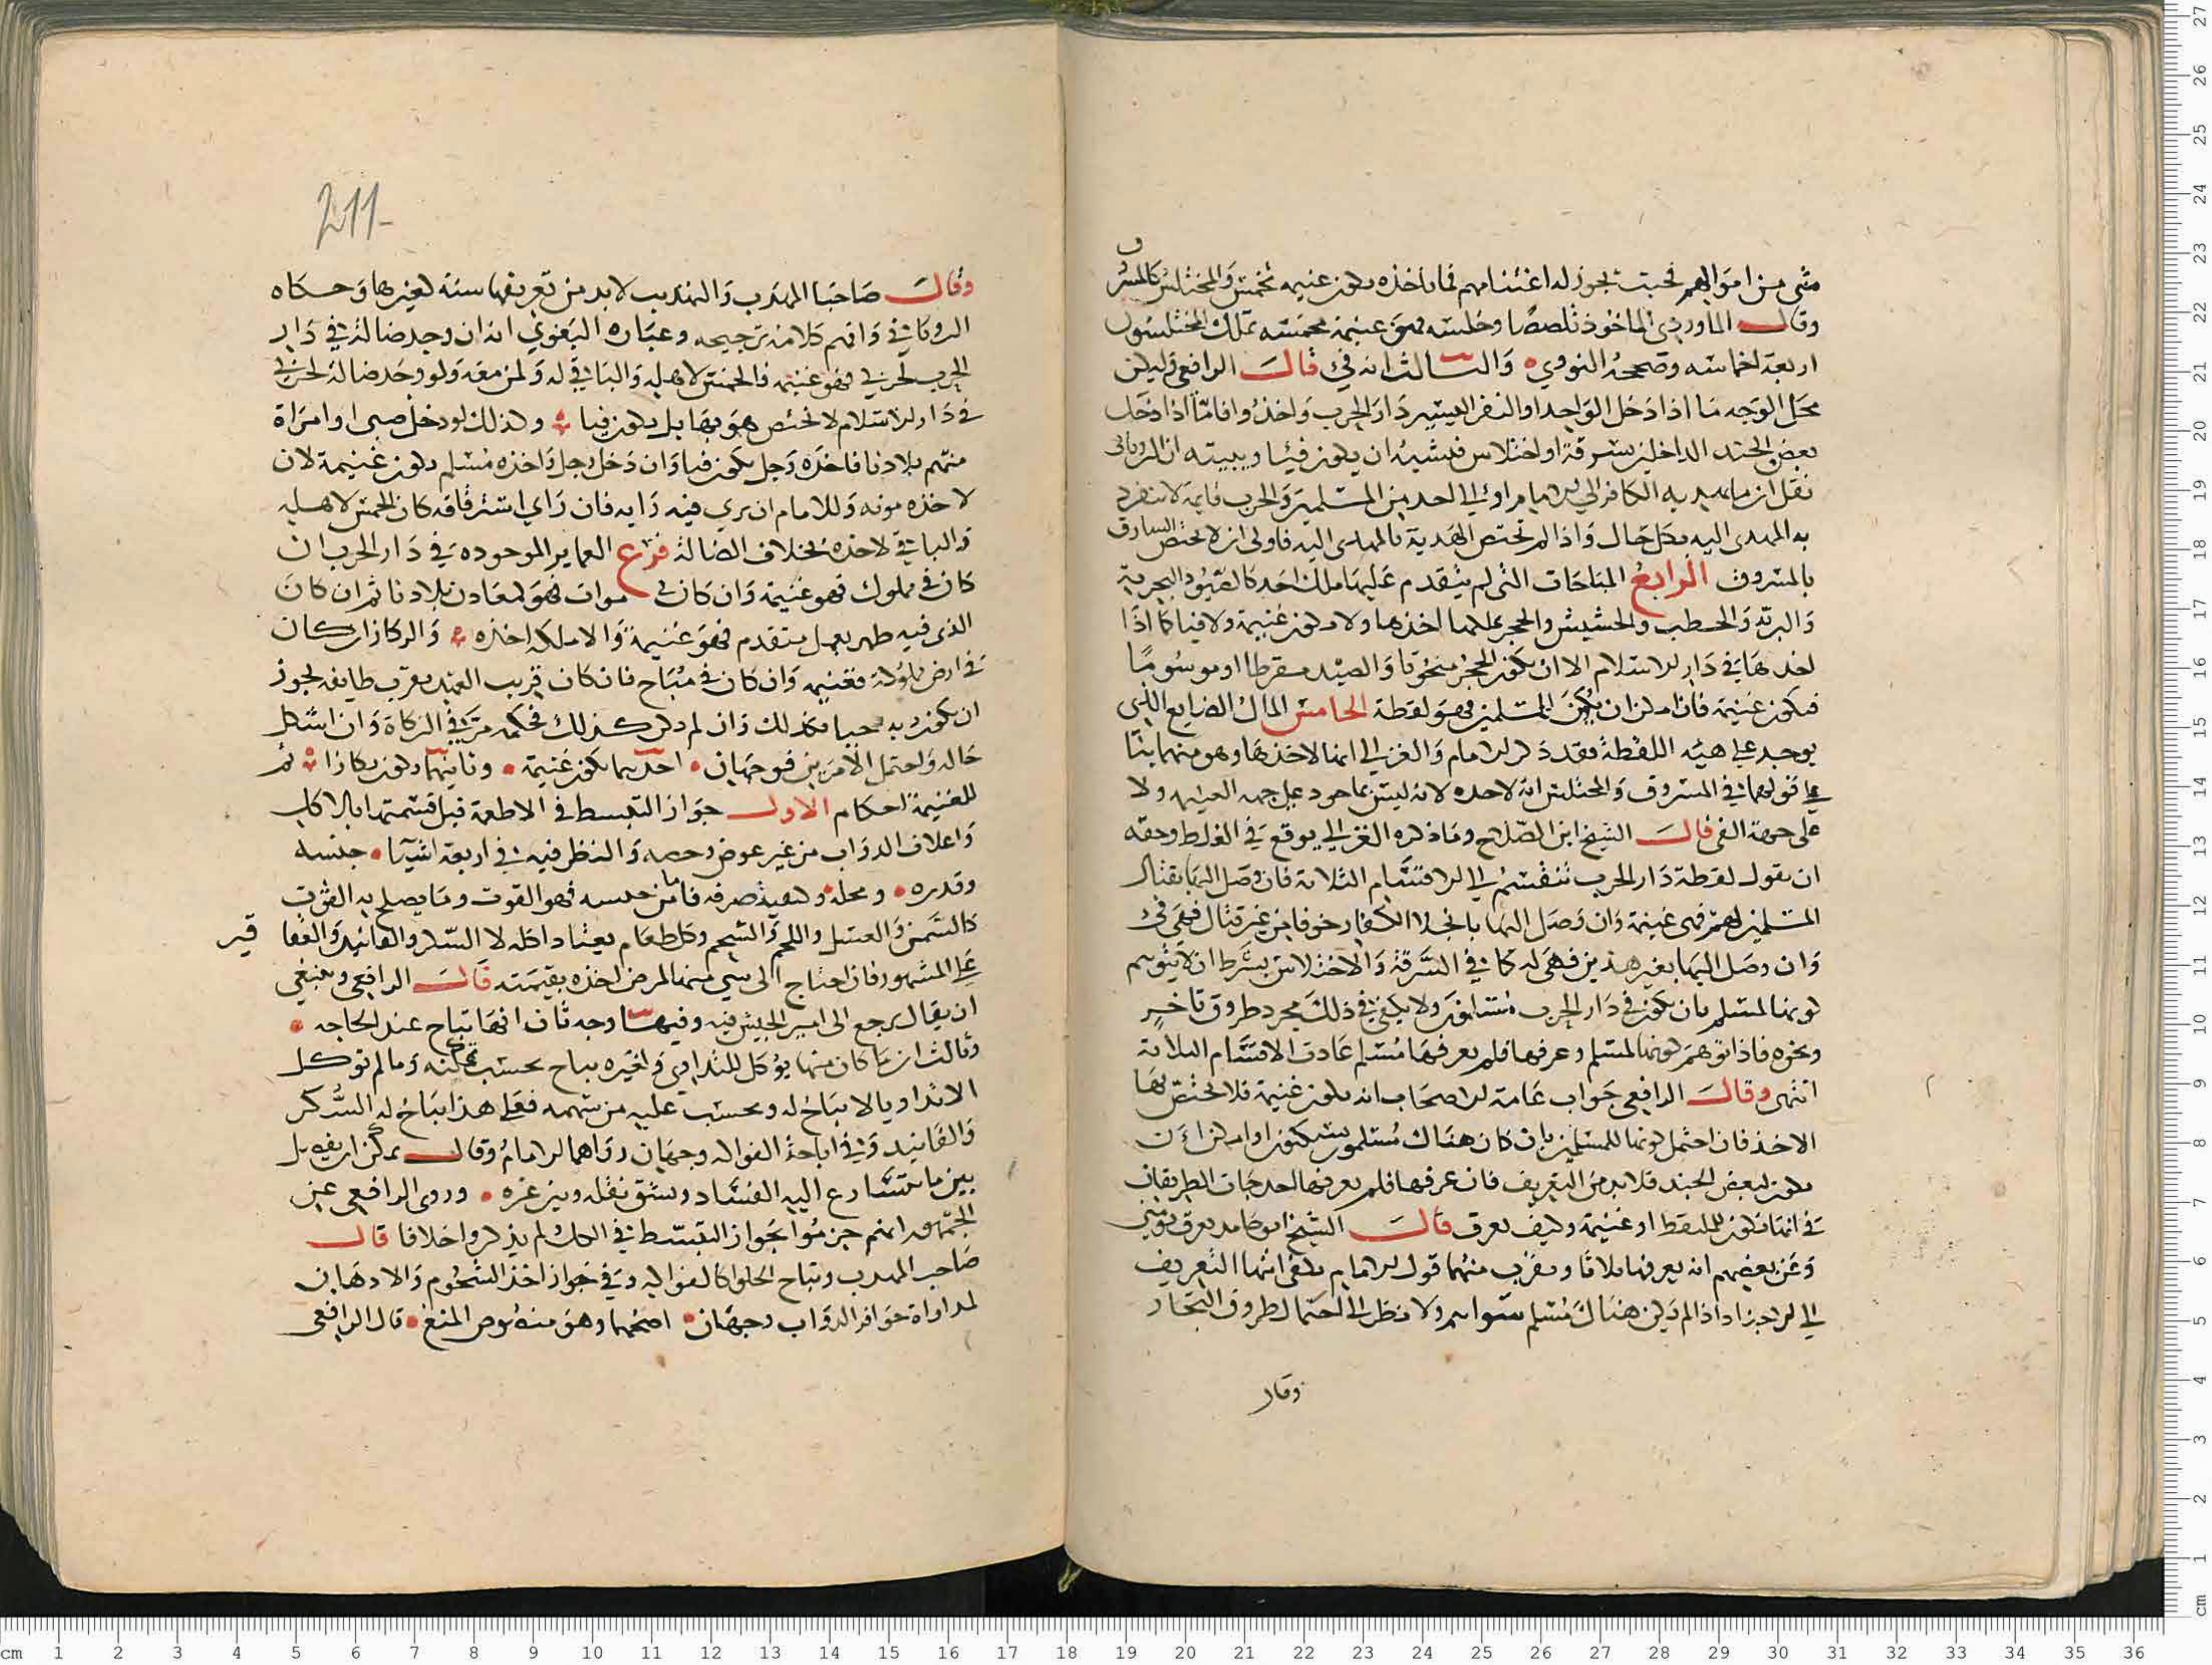 شي من اموالهم فحيث يجوز له اغتنامهم فما ياخذه يكون غنيمه تخمس والمختلس كالمسر
وق
وقال الماوردي الماخوذ تلصصا وخلسه فهو غنيمة مخمسه تملك المختلسون
اربعة اخماسه وصححه النووي والثالث انه في قال الرافعي وليكن
محل الوجه ما اذا دخل الواحد او النفر اليسير دار الحرب واخذوا فامّا اذا دخل
بعض الجند الداخلين بسرقة او اختلاس فيشبه ان يكون فيئا ويبينه ان الروياني
نقل ان ما يهديه الكافر الي الامام او الي احد من المسلمين والحرب قايمة لا ينفرد
به المهدى اليه بكل حال واذا لم تختص الهدية بالمهدى اليه فاولى ان لا يختص السارق
بالمسروق الرابع المباحات التي لم يتقدم عليها ملك احد كالصيود البحرية
والبرية والحطب والحشيش والحجر يملكها اخذها ولا يكون غنيمة ولا فيا كما اذا
اخذها في دار الاسلام الا ان يكون الحجر منحوتا والصيد مقرطا او موسوما
فيكون غنيمة فان امكن ان يكون للمسلمين فهو لقطة الخامس المال الضايع الذي
يوجد على هيئه اللقطة فقد ذكر الامام والغزالي انها لاخذها وهو منهما بنا
على قولهما في المسروق والمختلس انه لاخذه لانه ليس ماخوذ على جهه الغنيمه ولا
على جهة الفي قال الشيخ ابن الصلاح وما ذكره الغزالي يوقع في الغلط وحقه
ان يقول لقطة دار الحرب تنقسم الى الاقسام الثلاثة فان وصل اليها بقتال
المسلمين لهم فهي غنيمة وان وصل اليها بانجلا الكفار خوفا من غير قتال فهي في
وان وصل اليها بغير هذين فهي له كما في السرقة والاختلاس بشرط ان لا يتوهم
كونها لمسلم بان يكون في دار الحرب مسلمون ولا يكفي في ذلك مجرد طروق تاجر
ونحوه فاذا توهم كونها لمسلم وعرفها فلم يعرفها مسلم عادت الاقسام الثلاثة
انتهى وقال الرافعي جواب عامة الاصحاب انه يكون غنيمة فلا يختص بها
الاخذ فان احتمل كونها للمسلمين بان كان هناك مسلمون يسكنون او امكن ان
يكون لبعض الجند فلا بد من التعريف فان عرفها فلم يعرفها احد جات الطريقان
في انها تكون للملتقط او غنيمة وكيف يعرف قال الشيخ ابو حامد يعرف يومين
وعن بعضهم انه يعرفها ثلاثا ويقرب منهما قول الامام يكفي انهاا التعريف
الي الاجناد اذا لم يكن هناك مسلم سواهم ولا نظر الى احتمال طروق التجار
وقال
211
وقال صاحبا المهذب والتهذيب لا بد من تعريفها سنة لغيرها وحكاه
الروياني وافهم كلامه ترجيحه وعبارة البغوي انه ان وجد ضالة في دار
الحرب لحربي فهو غنيمه فالخمس لاهله والباقي له ولمن معه ولو وجد ضالة لحربي
في دار الاسلام لا يختص هو بها بل يكون فيا وكذلك لو دخل صبي او امراة
منهم بلادنا فاخذه رجل يكون فيا وان دخل رجل واخذه مسلم يكون غنيمة لان
لاخذه مونه وللامام ان يري فيه رايه فان راي استرقاقه كان الخمس لاهله
والباقي لاخذه بخلاف الضالة فرع المعادن الموجوده في دار الحرب ان
كان في مملوك فهو غنيمة وان كان في موات فهو كمعادن بلادنا ثم ان كان
الذي فيه ظهر بعمل متقدم فهو غنيمة والا ملكه اخذه والركاز ان كان
في ارض مملوكة فغنيمه وان كان في مباح فان كان قريب العهد بقرب طايفه يجوز
ان يكون بد كذلك وان لم يكن كذلك فحكمه مر في الزكاة وان اشكل
حاله واحتمل الامرين فوجهان احدهما يكون غنيمة وثانيهما يكون ركازا ثم
للغنيمة احكام الاول جواز التبسط في الاطعمة قبل قسمتها بالاكل
واعلاف الدواب من غير عوض والنظر فيه في اربعة اشيا جنسه
وقدره ومحله وكيفية صرفه فاما جنسه فهو القوت وما يصلح به القوت
كالسمن والعسل واللحم والشحم وكل طعام يعتاد اكله لا السكر والفانيد والعقا
قير
على المشهور فان احتاج الى شي منها المرض اخذه بقيمته قال الرافعي وينبغي
ان يقال يرجع الى امير الجيش فيه وفيها وجه ثان انها تباح عند الحاجه
وثالث ان ما كان منها يؤكل للتداوي ولغيره يباح بحسب تمكنه وما لم توكل
الا تداويا لا يباح له ويحسب عليه من سهمه فعلى هذا يباح له السكر
والفانيد وفي اباحة الفواكه وجهان رواهما الامام وقال يمكن ان يفصل
بين ما يتسارع اليه الفساد ويشق نقله وبين غيره وروى الرافعي عن
الجمهور انهم جزموا بجواز التبسط في الكل لم يذكروا خلافا قال
صاحب المهذب وتباح الحلوا كالفواكه وفي جواز اخذ الشحوم والادهان
لمداواة حوافر الدواب وجهان اصحهما وهو منصوص المنع قال الرافعي